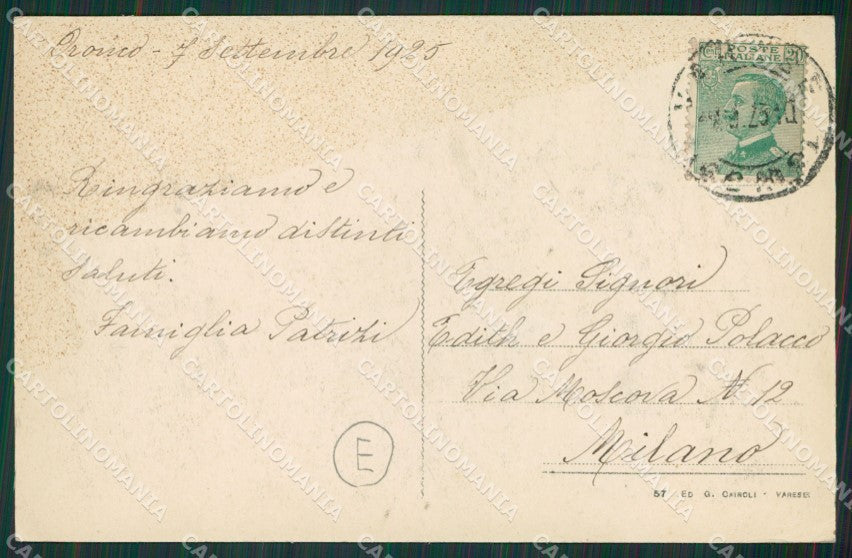 7 Settembre 1925
Ringraziamo e
ricambiamo distinti
saluti.
Famiglia Patrizi
E
C. POSTE 20
ITALIANE
Egregi Signori
Edith e Giorgio Polacco
Via Moscova N 12
Milano
57 ED G. CAIROLI - VARESE
CARTOLINOMANIA